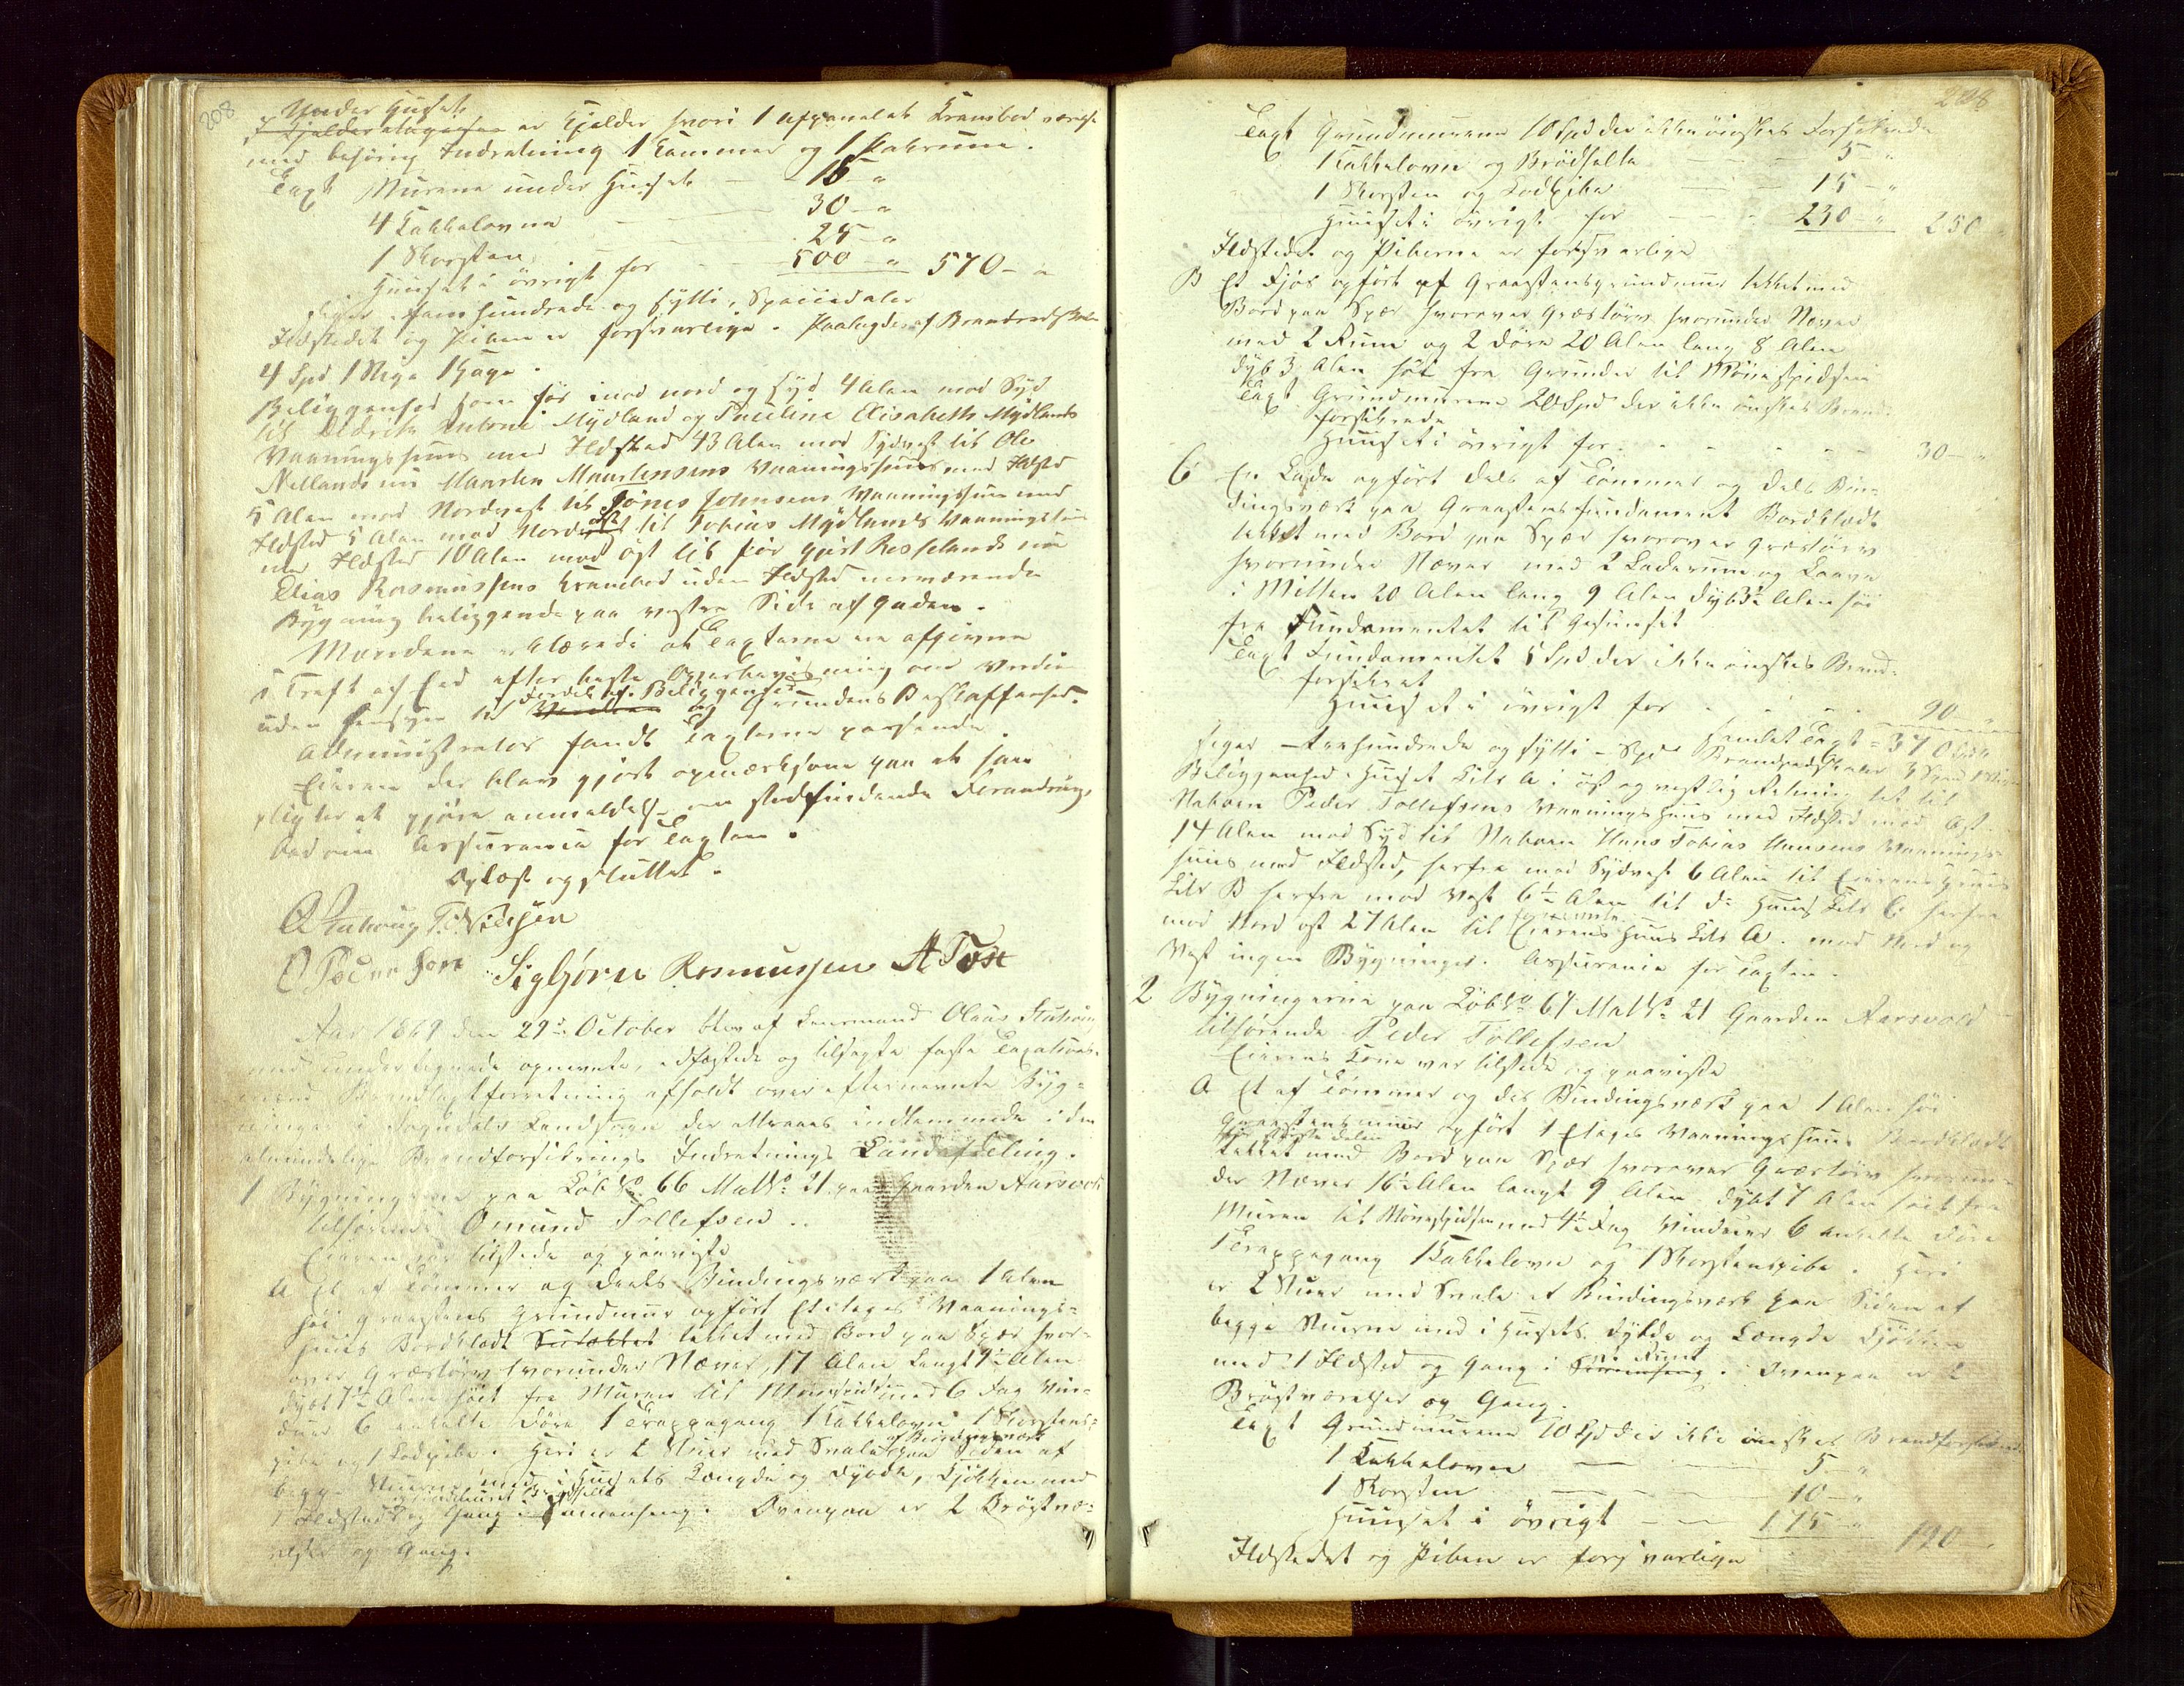 208
Under Huset
I Kjelderetagen er Kjelder hvori 1 afpanelet Krambod værelse
med behörig Indretning 1 Kammer og 1 Pakrum.
Taxt Murene under Huset — 15 — "
4 Kakkelovne — 30 — "
1 Skorsten — 25 — "
Huset i övrigt for — 500 — " 570 — "
siger - femhundrede og sytti, Speciedaler
Ildstedet og Piben er forsvarlige. Paalagdes af Brandredskaber
4 Spd 1 Stige 1 Hage.
Beliggenhed som för mod nord og syd 4 Alen mod Syd
til Didrik Antoni Mydland og Pauline Elisabeth Mydlands
Vaaningshuus med Ildsted 43 Alen mod Sydvest til Ole
Netlands nu Maarten Maartensens Vaaningshuus med Ildsted
5 Alen mod Nordvest til Jönes Johnsens Vaaningshuus med
Ildsted 5 Alen mod Nordost til Tobias Mydlands Vaaningshuus
med Ildsted 10 Alen mod öst til för Gjert Rosselands nu
Elias Rasmussens Krambod uden Ildsted nærværende
Bygning beliggende paa vestre Side af gaden.
Mændene erklærede at Taxterne ere afgivne
i Kraft af Eed efter beste Overbeviisning om Verdien
uden Hensyn til fordel af Beliggenhed og Grundens Beskaffenhed.
Administrator fandt Taxterne passende.
Eieren der blev gjort opmærksom paa at han
pligter at gjöre anmeldelse om stedfindende Forandring,
bad om Assurance for Taxten.
Oplæst og sluttet.
O Stuhoug T. Nielsen
O Pedersen Sigbjörn Rasmussen A Tose
Aar 1869 den 29de October blev af Lensmand Olaus Stuhoug
med undertegnede opnævnte, edfæstede og tilsagte faste Taxations-
mænd Brandtaxtforretning afholdt over efternævnte Byg-
ninger i Sogndals Landsogn der attraaes indlemmede i den
almindelige Brandforsikrings Indretnings Landafdeling.
1 Bygningerne paa LöbNo 66 MatNo 21 paa Gaarden Aarsvold
tilhörende Omund Tollefsen.
Eieren var tilstede og paaviste
A Et af Tömmer og deels Bindingsværk paa 1 Alen
höi Graasteens Grundmuur opfört Et etages Vaanings-
huus Bordklædt tækket med Bord paa Spær hvor-
over Græstörv hvorunder Næver, 17 Alen Langt 9½ Alen
dybt 7½ Alen höit fra Muren til Mönespidsen med 6 Fag Vin-
duer 6 enkelte Döre 1 Trappegang 1 Kakkelovn 1 Skorsteens-
pibe og 1 Lodpibe. Heri er 2 Stuer med Svale af Bindingsværk paa Siden af
begge Stuerne med i Husets Længde og Dybde, Kjökken med
1 Ildsted og Gang i Sammenhæng. Ovenpaa er 2 Bröstvæ-
relser og Gang.
208
Taxt Grundmurene 10 Spd der ikke önskes Forsikrede
1 Kakkelovn og Brödhelle — 5 — "
1 Skorsten og Lodpibe — 15 — "
Huuset i övrigt for — 230 — " 250
Ildstedet og Piberne er forsvarlige
B Et Fjös opfört af Graasteensgrundmuur tækket med
Bord paa Spær hvorover Græstörv hvorunder Næver
med 2 Rum og 2 döre 20 Alen lang 8 Alen
dyb 3 Alen höi fra Grunden til Mönespidsen
Taxt Grundmurene 20 Spd der ikke önskes Brand-
forsikrede
Huuset i övrigt for — 30 — "
C En Lade opfört dels af Tömmer og dels Bin-
dingsværk paa Graasteensfundament Bordklædt
tækket med Bord paa Spær hvorover Græstörv
hvorunder Næver med 2 Laderum og Laave
i Mitten 20 Alen lang 9 Alen dyb 5½ Alen höi
fra Fundamentet til Gesimset
Taxt Fundamentet 5 Spd der ikke önskes Brand-
forsikret
Huuset i övrigt for — 90 — "
Samlet Taxt = 370 Spd
siger - trehundrede og sytti - Spd Brandredskaber 3 Spand 1 Stige
Beliggenhed: Huset Litr A i öst og vestlig Retning tet til
Naboen Peder Tollefsens Vaaningshuus med Ildsted mod Öst
14 Alen mod Syd til Naboen Hans Tobias Hansens Vaanings-
huus med Ildsted, herfra mod Sydvest 6 Alen til Eierens Huus
Litr B herfra mod Vest 6½ Alen til do Huus Litr C herfra
mod Nord ost 27 Alen til Eierens Huus Litr A. mod Nord og
Vest ingen Bygninger. Assurance for Taxten.
2 Bygningerne paa LöbNo 67 MatNo 21 Gaarden Aarsvold
tilhörende Peder Tollefsen
Eierens Kone var tilstede og paaviste
A Et af Tömmer og des Bindingsværk paa 1 Alen höi
Graasteensmuur opfört 1 Etages Vaaningshuus Bordklædt
tækket med Bord paa Spær hvorover Græstörv hvorun-
der Næver 16½ Alen langt 9 Alen dybt 7 Alen höit fra
Muren til Mönespidsen med 4½ Fag Vinduer 6 enkelte Döre
1 Trappegang 1 Kakkelovn og 1 Skorsteenspibe. Heri
er 2 Stuer med Svale af Bindingsværk paa Siden af
begge Stuerne med i Husets Dybde og Længde Kjökken
med 1 Ildsted og Gang i et Rum. Ovenpaa er 2
Bröstværelser og Gang.
Taxt Grundmurene 10 Spd der ikke önskes Brandforsikrede
1 Kakkelovn — 5 — "
1 Skorsten — 10 — "
Huuset i övrigt — 175 — " 190
Ildstedet og Piben er forsvarlige